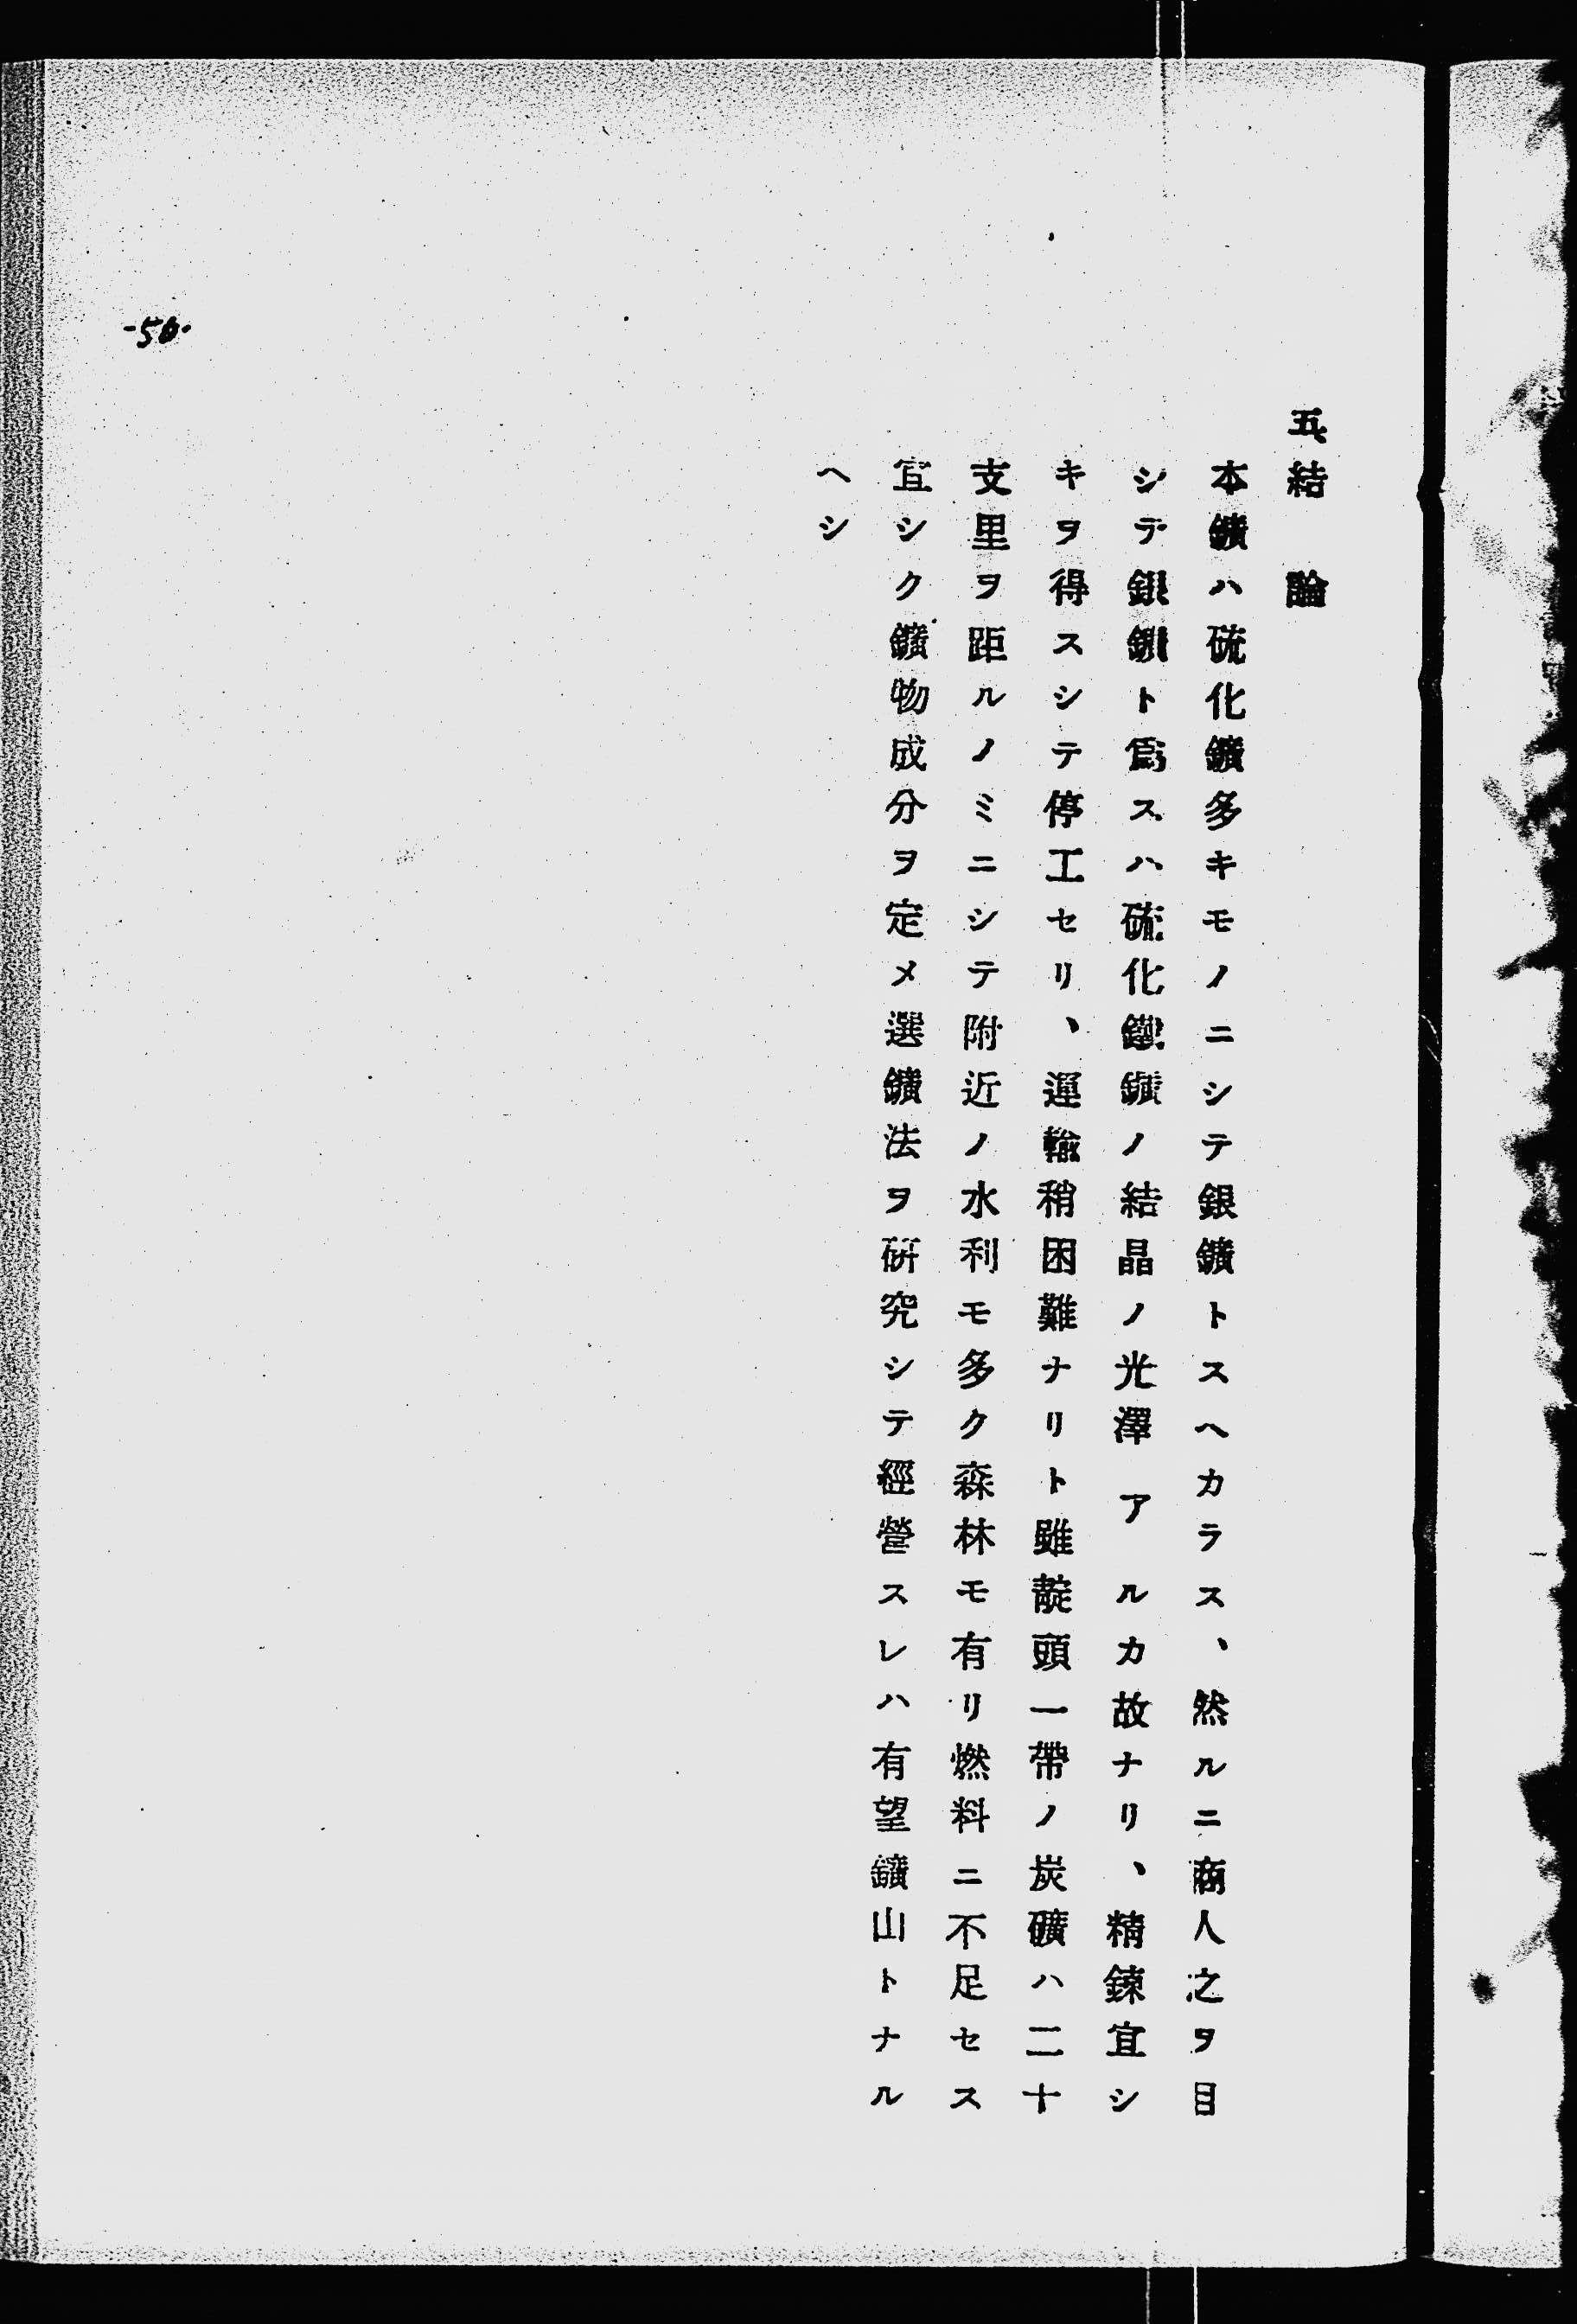 五、結論
本鑛ハ硫化鑛多キモノニシテ銀鑛トスヘカラス、然ルニ商人之ヲ目
シテ銀鑛ト爲スハ硫化鐵鑛ノ結晶ノ光澤アルカ故ナリ、精鍊宜シ
キヲ得スシテ停工セリ、運輸稍困難ナリト雖靛頭一帶ノ炭礦ハ二十
支里ヲ距ルノミニシテ附近ノ水利モ多ク森林モ有リ燃料ニ不足セス
宜シク鑛物成分ヲ定メ選鑛法ヲ硏究シテ經營スレハ有望鑛山トナル
ヘシ
-50-